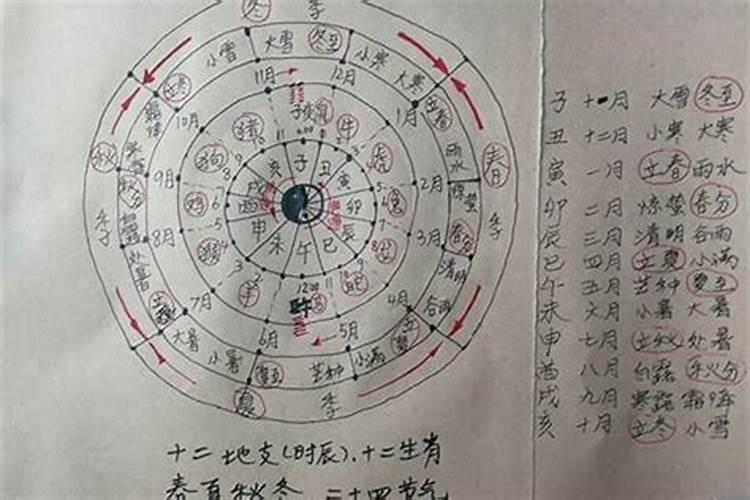 冬 季
小雪 大雪 冬至 小寒 大寒
立冬 立春
11月 12月
10月 1月
子 鼠 牛
猪 虎
狗 亥 子 丑 寅
秋 春
9月 2月 雨水
秋分 鸡 戌 酉 卯 兔 惊蛰
季 季
8月 申 辰 3月 春分
猴 未 午 巳 清明
处暑 羊 12:00 蛇 谷雨
立秋 7月 午 4月
大暑 6月 5月 立夏
小暑 夏至 芒种 小满
夏 季
子 十一月 大雪 冬至
丑 十二月 小寒 大寒
寅 一月 立春 雨水
卯 二月 惊蛰 春分
辰 三月 清明 谷雨
巳 四月 立夏 小满
午 五月 芒种 夏至
未 六月 小暑 大暑
申 七月 立秋 处暑
酉 八月 白露 秋分
戌 九月 寒露 霜降
亥 十月 立冬 小雪
十二地支(时辰)、十二生肖
春夏秋冬 二十四节气